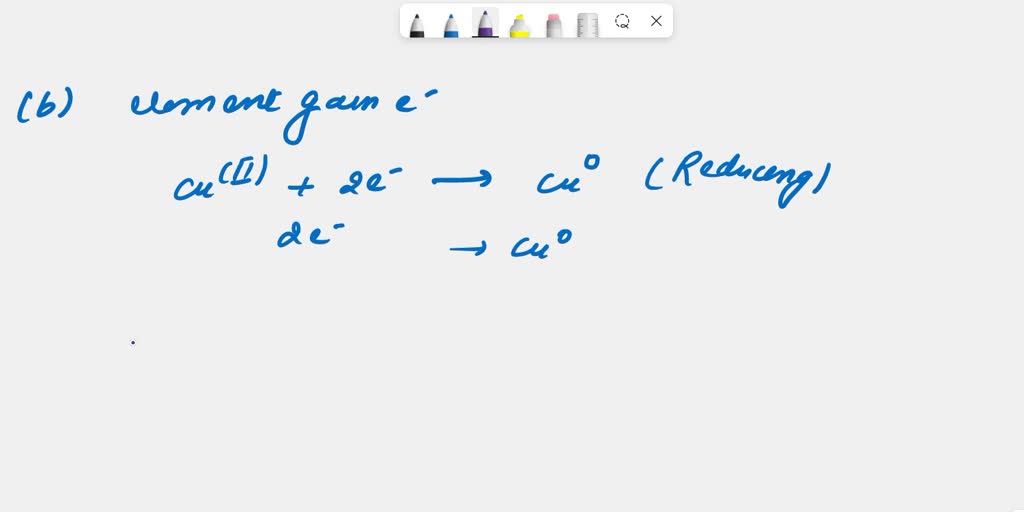 (b) element gain e⁻
Cu⁽ᴵᴵ⁾ + 2e⁻ → Cu⁰ (Reducing)
2e⁻ → Cu⁰